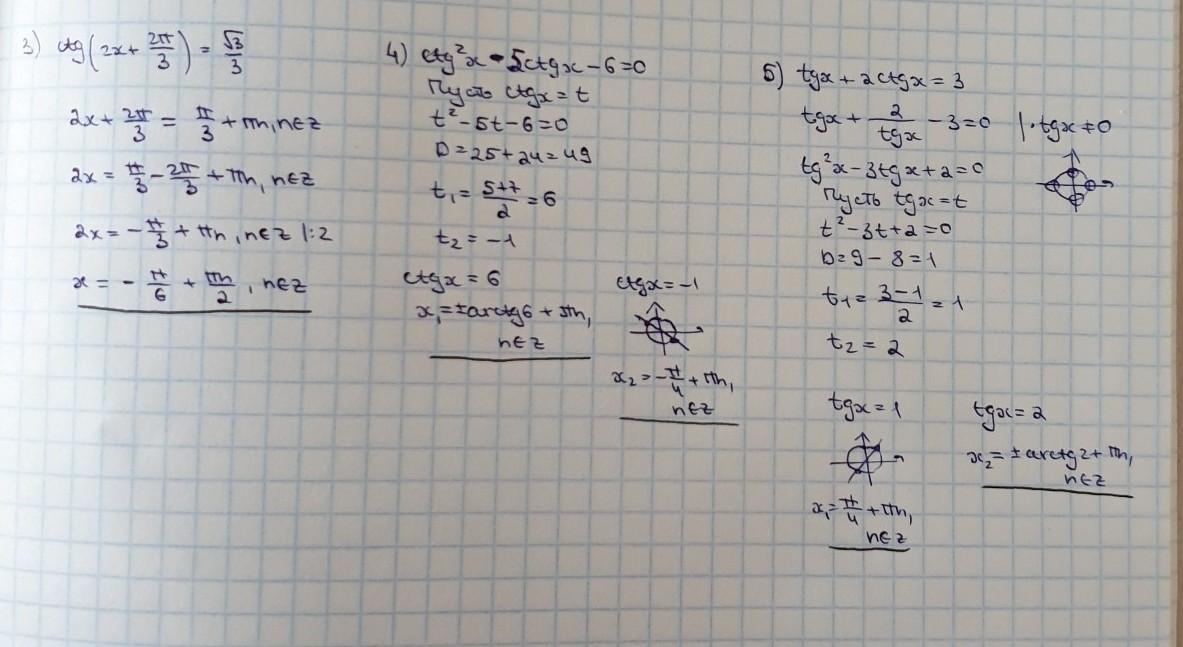 3) ctg(2x + 2π/3) = √3/3
2x + 2π/3 = π/3 + πn, n∈z
2x = π/3 - 2π/3 + πn, n∈z
2x = - π/3 + πn, n∈z |:2
x = - π/6 + πn/2, n∈z
4) ctg²x - 5ctgx - 6 = 0
Пусть ctgx = t
t² - 5t - 6 = 0
D = 25 + 24 = 49
t₁ = 5+7/2 = 6
t₂ = -1
ctgx = 6
x₁ = ±arctg6 + πn,
n∈z
ctgx = -1
x₂ = - π/4 + πn,
n∈z
5) tgx + 2ctgx = 3
tgx + 2/tgx - 3 = 0 | · tgx ≠ 0
tg²x - 3tgx + 2 = 0
Пусть tgx = t
t² - 3t + 2 = 0
D = 9 - 8 = 1
t₁ = 3-1/2 = 1
t₂ = 2
tgx = 1
x₁ = π/4 + πn,
n∈z
tgx = 2
x₂ = ±arctg2 + πn,
n∈z